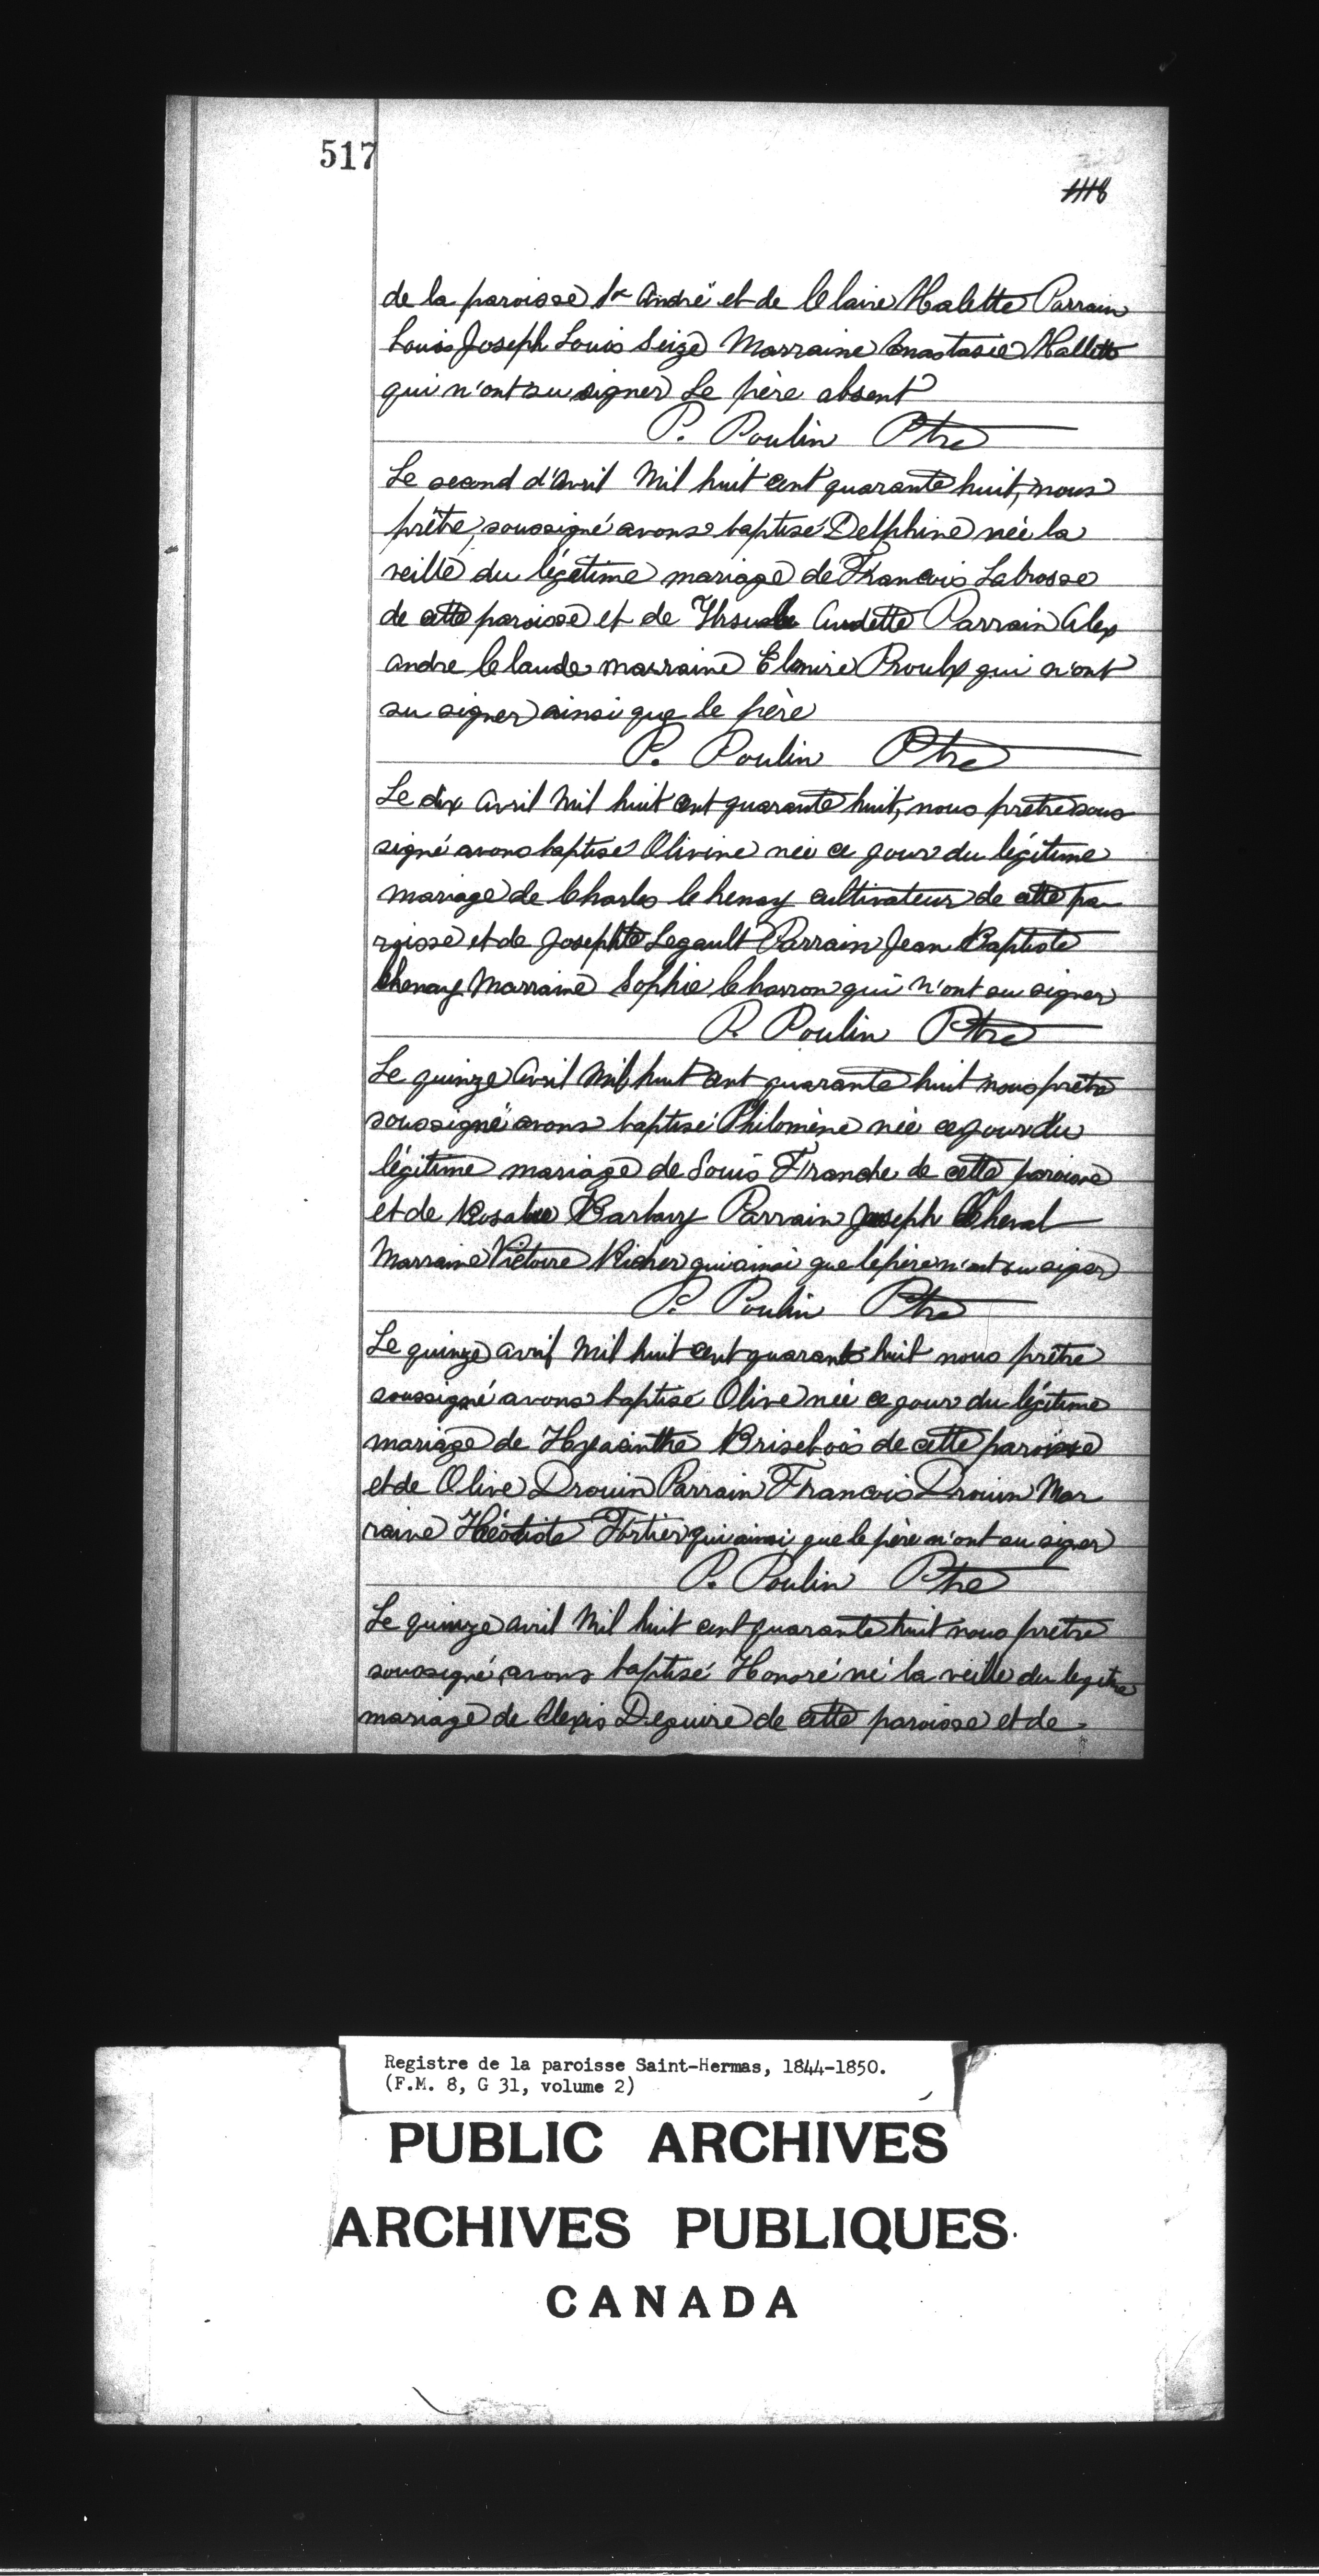 517
1118
de la paroisse St André et de Claire Malette Parrain
Louis Joseph Louis Seize Marraine Anastasie Mallette
qui n'ont su signer Le père absent
P. Poulin Ptre
Le second d'Avril Mil huit cent quarante huit, nous
prêtre, soussigné avons baptisé Delphine née la
veille du légetime mariage de Francois Labrosse
de cette paroisse et de Ursule Audette Parrain Alex
andre Claude marraine Elmire Proulx qui n'ont
su signer ainsi que le père
P. Poulin Ptre
Le dix Avril Mil huit cent quarante huit, nous prêtre sous
signé avons baptisé Olivine née ce jour du légitime
mariage de Charles Chenay cultivateur de cette pa
roisse et de Josephte Legault Parrain Jean Baptiste
Chenay Marraine Sophie Charron qui n'ont su signer
P. Poulin Ptre
Le quinze Avril Mil huit cent quarante huit nous prêtre
soussigné avons baptisé Philomène née ce jour du
légitime mariage de Louis Franche de cette paroisse
et de Rosalie Barbary Parrain Joseph Cheval
Marraine Victoire Richer qui ainsi que le père n'ont su signer
P. Poulin Ptre
Le quinze avril Mil huit cent quarante huit nous prêtre
soussigné avons baptisé Olive née ce jour du légitime
mariage de Hyacinthe Brisebois de cette paroisse
et de Olive Drouin Parrain Francois Drouin Mar
raine Fortier qui ainsi que le père n'ont su signer
P. Poulin Ptre
Le quinze avril Mil huit cent quarante huit nous prêtre
soussigné, avons baptisé Honoré né la veille du legitime
mariage de Alexis Deguire de cette paroisse et de
Registre de la paroisse Saint-Hermas, 1844-1850.
(F.M. 8, G 31, volume 2)
PUBLIC ARCHIVES
ARCHIVES PUBLIQUES
CANADA